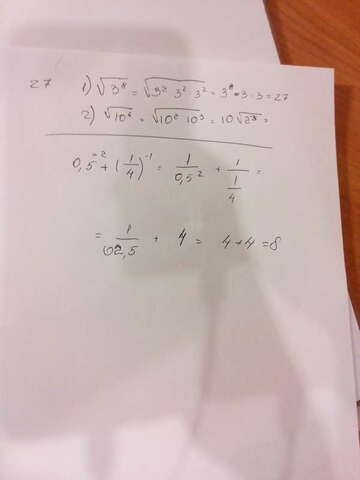 27 1) √3⁸ = √3² 3² 3² = 3⁸ = 3 · 3 = 27
2) √10⁶ = √10² 10³ = 10√2³ =
0,5⁻² + (1/4)⁻¹ = 1/0,5² + 1/(1/4) =
= 1/02,5 + 4 = 4+4 = 8